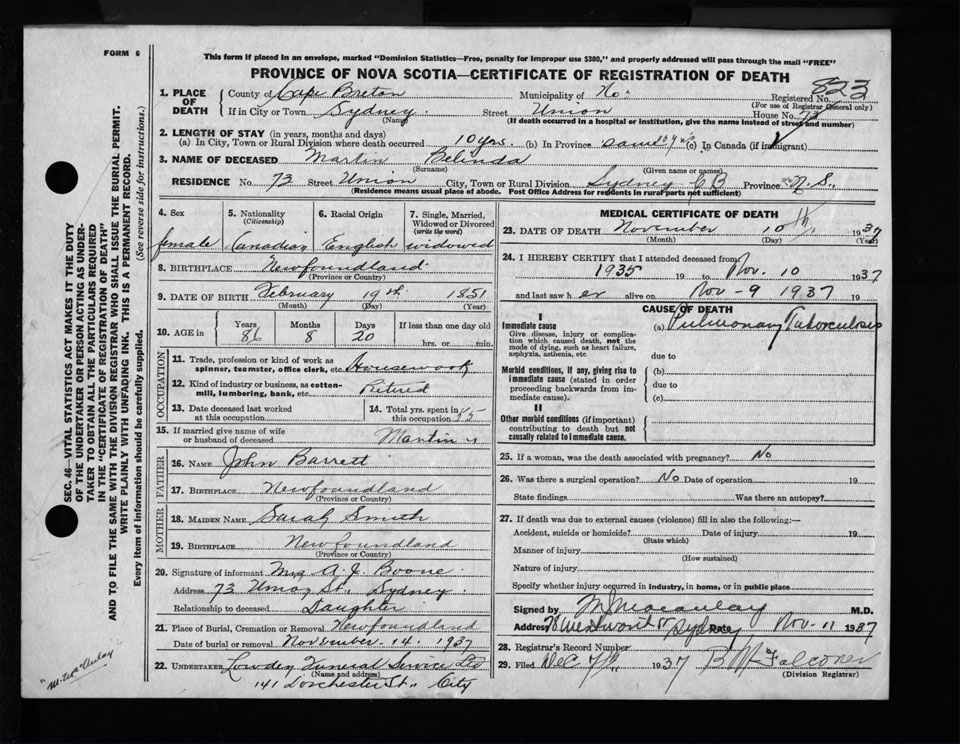 FORM 6
This form if placed in an envelope, marked "Dominion Statistics—Free, penalty for improper use $300," and properly addressed will pass through the mail "FREE"
PROVINCE OF NOVA SCOTIA—CERTIFICATE OF REGISTRATION OF DEATH
823
1. PLACE OF DEATH
County of Cape Breton Municipality of No. Registered No.
(For use of Registrar General only)
If in City or Town Sydney. Street Union House No. 73
(Name) (If death occurred in a hospital or institution, give the name instead of street and number)
2. LENGTH OF STAY (in years, months and days)
(a) In City, Town or Rural Division where death occurred 10 yrs. (b) In Province same (c) In Canada (if immigrant)
3. NAME OF DECEASED Martin Belinda
(Surname) (Given name or names)
RESIDENCE No. 73 Street Union City, Town or Rural Division Sydney C B Province N. S.,
(Residence means usual place of abode. Post Office Address for residents in rural parts not sufficient)
4. Sex
female
5. Nationality
(Citizenship)
Canadian
6. Racial Origin
English
7. Single, Married, Widowed or Divorced
(write the word)
widowed
8. BIRTHPLACE Newfoundland
(Province or Country)
9. DATE OF BIRTH February 19th. 1851
(Month) (Day) (Year)
10. AGE in Years Months Days If less than one day old
86 8 20 hrs. or min.
OCCUPATION
11. Trade, profession or kind of work as spinner, teamster, office clerk, etc. Housework
12. Kind of industry or business, as cotton-mill, lumbering, bank, etc. Retired
13. Date deceased last worked at this occupation
14. Total yrs. spent in this occupation 45
15. If married give name of wife or husband of deceased Martin
FATHER
16. NAME John Barrett
17. BIRTHPLACE Newfoundland
(Province or Country)
MOTHER
18. MAIDEN NAME Sarah Smith
19. BIRTHPLACE Newfoundland
(Province or Country)
20. Signature of informant Mrs A. J. Boone
Address 73 Union St., Sydney.
Relationship to deceased Daughter
21. Place of Burial, Cremation or Removal Newfoundland
Date of burial or removal November. 14. 1937
22. UNDERTAKER Lowden Funeral Service Ltd
(Name and address)
141 Dorchester St., City
MEDICAL CERTIFICATE OF DEATH
23. DATE OF DEATH November 10th 1937
(Month) (Day) (Year)
24. I HEREBY CERTIFY that I attended deceased from
1935 19 to Nov. 10 1937
and last saw her alive on Nov - 9 1937 19
CAUSE OF DEATH
I
Immediate cause
Give disease, injury or complication which caused death, not the mode of dying, such as heart failure, asphyxia, asthenia, etc.
(a) Pulmonary Tuberculosis
due to
Morbid conditions, if any, giving rise to immediate cause (stated in order proceeding backwards from immediate cause).
(b)
due to
(c)
II
Other morbid conditions (if important) contributing to death but not causally related to immediate cause.
25. If a woman, was the death associated with pregnancy? No
26. Was there a surgical operation? No Date of operation 19
State findings Was there an autopsy?
27. If death was due to external causes (violence) fill in also the following:—
Accident, suicide or homicide? Date of injury 19
(State which)
Manner of injury
(How sustained)
Nature of injury
Specify whether injury occurred in industry, in home, or in public place
Signed by M J Macaulay M.D.
Address 78 Wentworth St Sydney Date Nov. 11 1937
28. Registrar's Record Number
29. Filed Dec 7th, 1937 B. W. Falconer
(Division Registrar)
SEC. 46—VITAL STATISTICS ACT MAKES IT THE DUTY
OF THE UNDERTAKER OR PERSON ACTING AS UNDER-
TAKER TO OBTAIN ALL THE PARTICULARS REQUIRED
IN THE "CERTIFICATE OF REGISTRATION OF DEATH"
AND TO FILE THE SAME WITH THE DIVISION REGISTRAR WHO SHALL ISSUE THE BURIAL PERMIT.
WRITE PLAINLY WITH UNFADING INK. THIS IS A PERMANENT RECORD.
Every item of information should be carefully supplied. (See reverse side for instructions.)